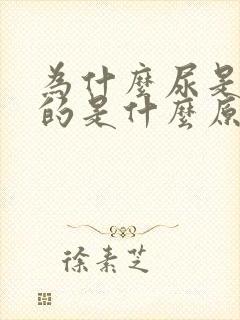 為什麼尿是
的是什麼原
徐素芝